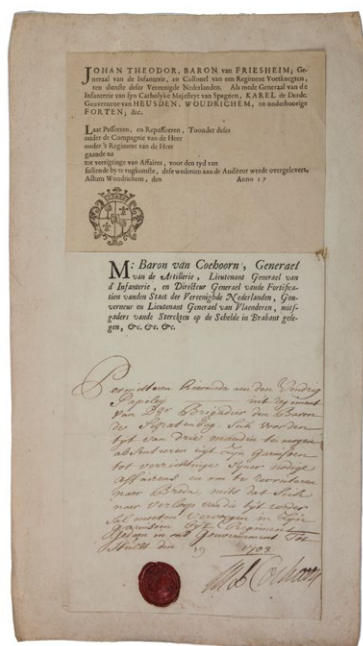 JOHAN THEODOR, BARON van FRIESHEIM; Ge-
neraal van de Infanterie, en Collonel van een Regiment Voetknegten,
ten dienste deser Vereenigde Nederlanden. Als mede Generaal van de
Infanterie van syn Catholyke Majesteyt van Spagnen, KAREL de Derde.
Gouverneur van HEUSDEN, WOUDRICHEM, en onderhoorige
FORTEN; &c.
Laat Passeeren, en Repasseeren, Toonder deses
onder de Compagnie van de Heer
onder 't Regiment van de Heer
gaande na
tot verrigtinge van Affaires, voor den tyd van
sullende by te rugkomste, dese wederom aan de Auditeur werde overgelevert.
Actum Woudrichem, den Anno 17
M: Baron van Coehoorn, Generael
van de Artillerie, Lieutenant Generael van
d'Infanterie, en Directeur Generael vande Fortifica-
tien vanden Staet der Vereenighde Nederlanden, Gou-
verneur en Lieutenant Generael van Vlaenderen, mits-
gaders vande Stercken op de Schelde in Brabant gele-
gen, &c. &c. &c.
Permitteren hiermede aen den Vendrig
uit regiment
van Brigadier den Baron
de
tyt van drie maenden te mogen
absenteren uyt sijn garnisoen
tot verrichtinge sijner nodige
affairens en om te
naer Breda, mits dat
naer verloop van die tyt
sal moeten
Garnisoen Regiment
Gedaen in ons Gouvernement Tot
Hulst den 19 1703